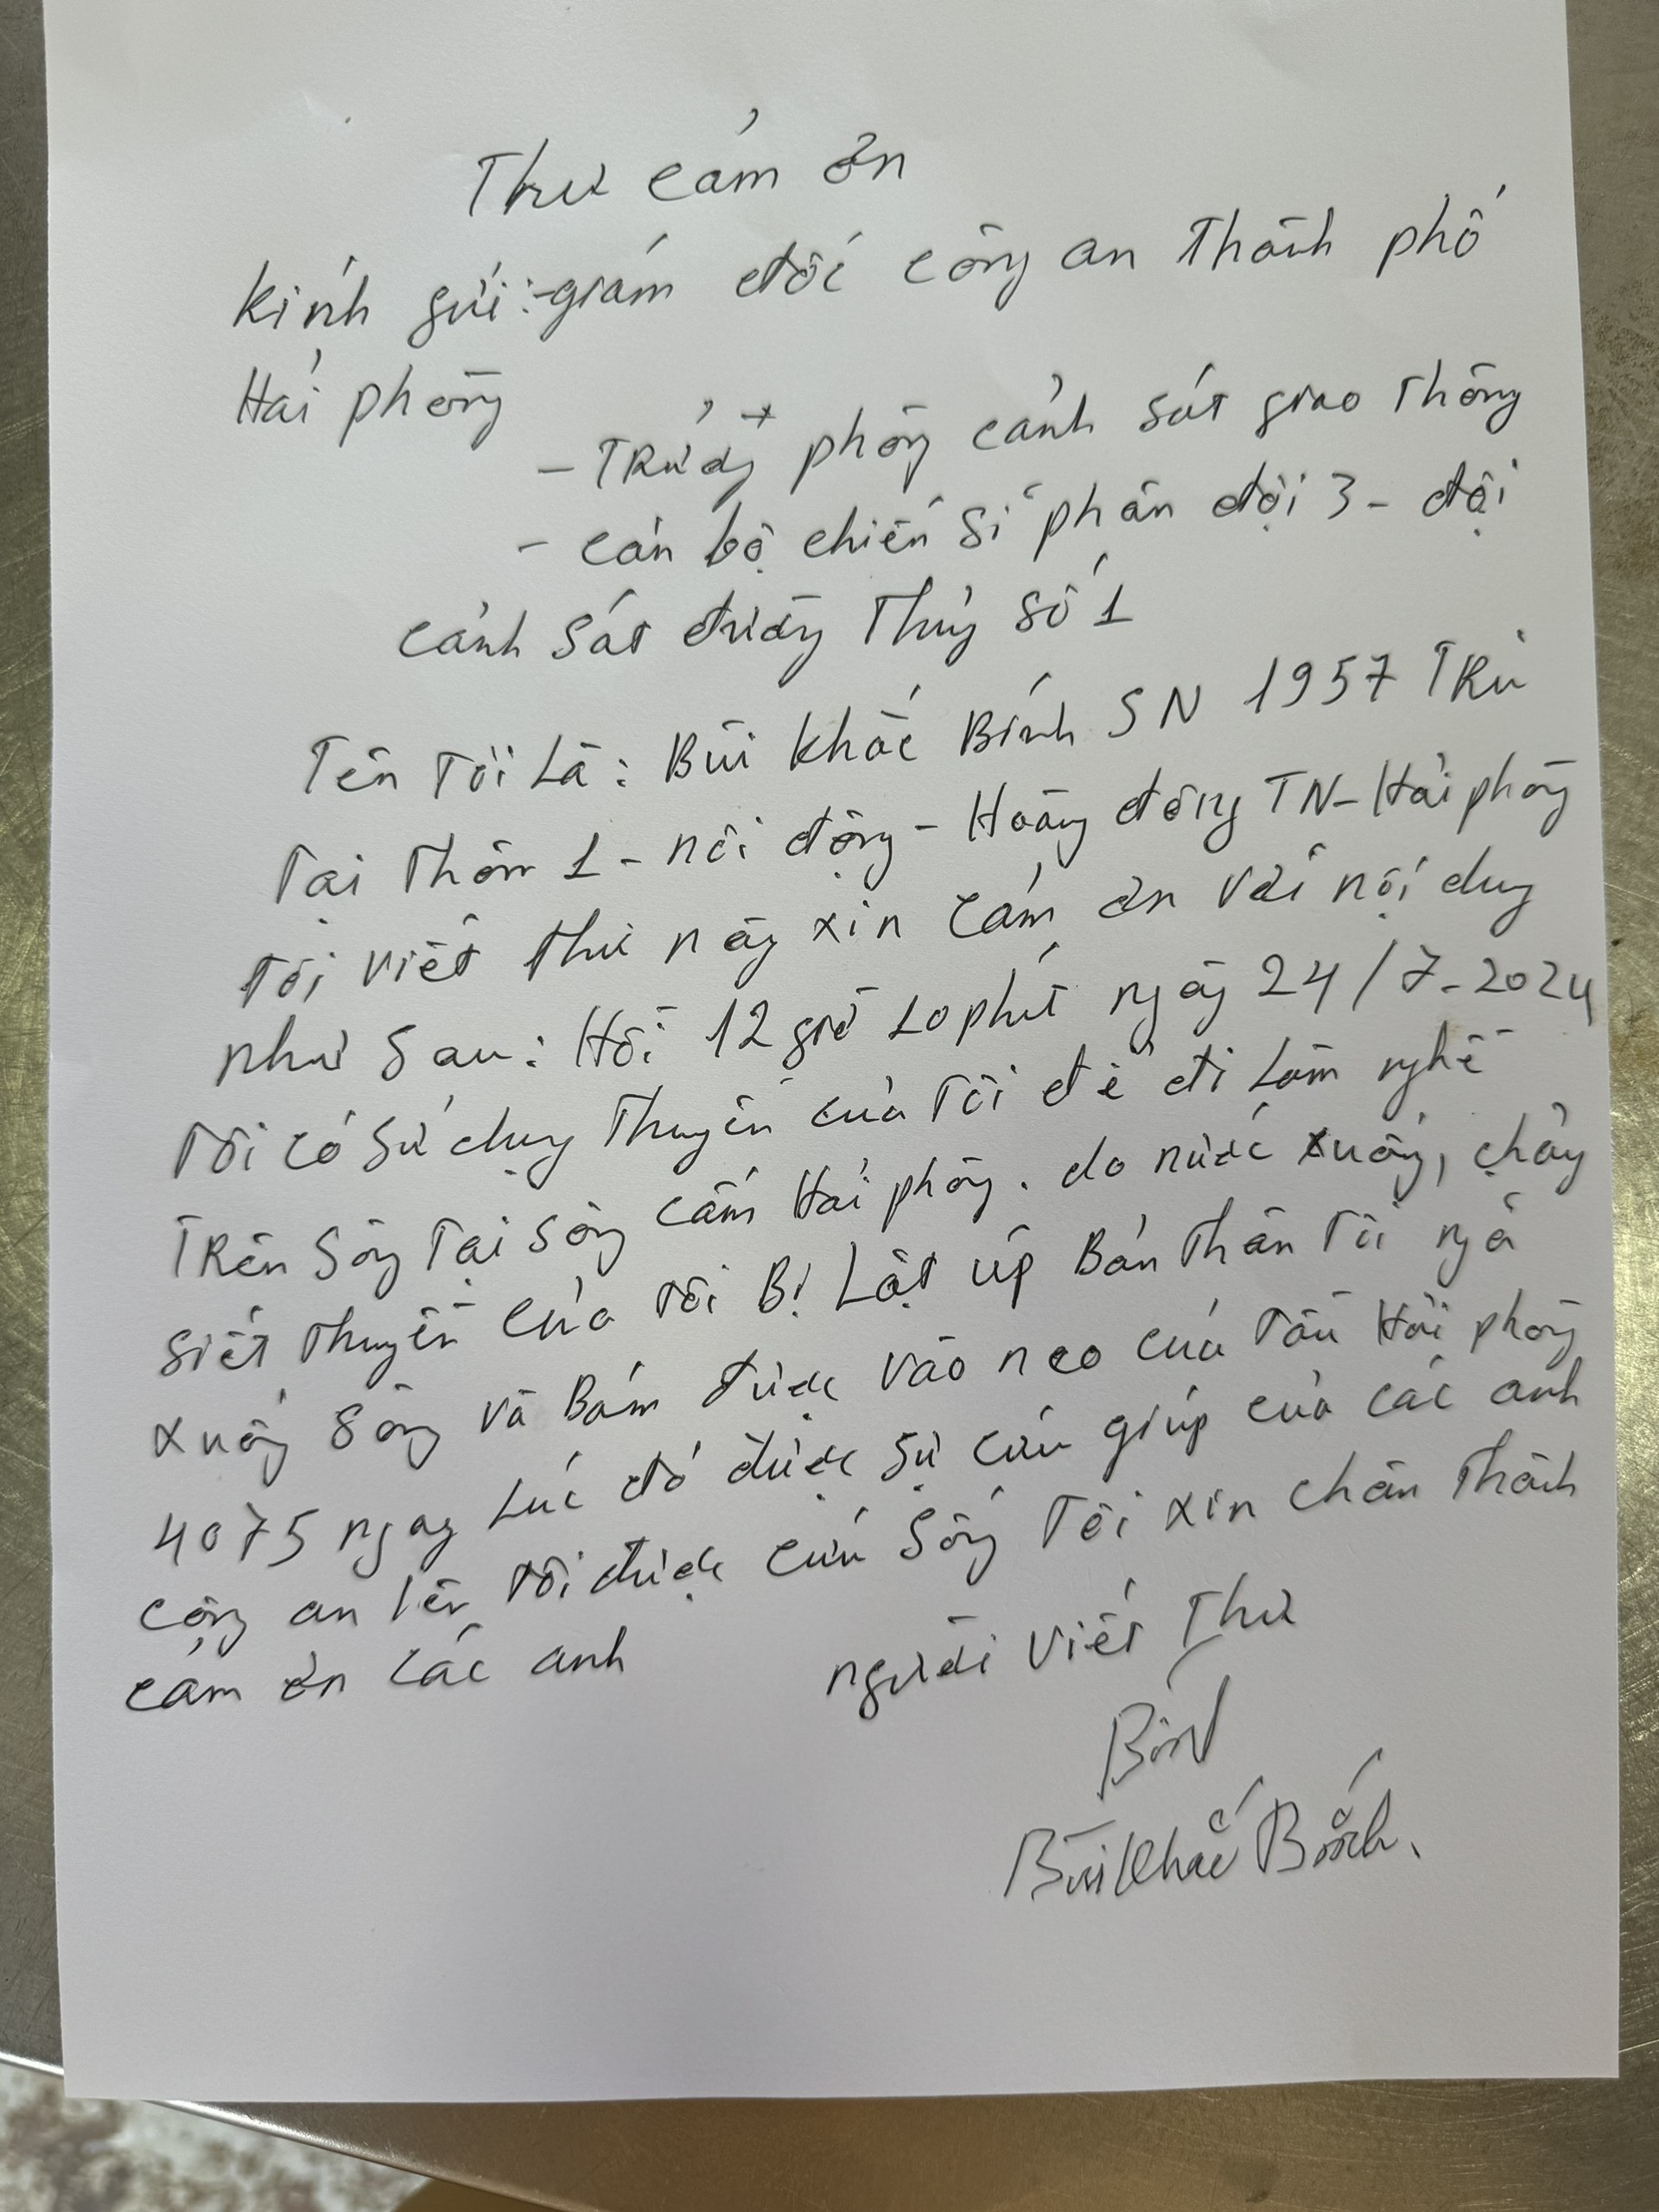 Thư cảm ơn
Kính gửi: - giám đốc công an thành phố
Hải phòng
- Trưởng phòng cảnh sát giao thông
- cán bộ chiến sĩ phân đội 3 - đội
cảnh sát đường thủy số 1
Tên tôi Là: Bùi khắc Bính SN 1957 TRú
Tại thôn 1 - nôi động - Hoàng động TN - Hải phòng
Tôi viết thư này xin cảm ơn với nội dung
như sau: Hồi 12 giờ 10 phút ngày 24/7-2024
Tôi có sử dụng Thuyền của Tôi để đi Làm nghề
TRên Sông Tại Sông Cấm Hải phòng. do nước xuống, chảy
siết thuyền của Tôi Bị Lật úp Bản thân Tôi ngã
xuống Sông và Bám được vào neo của Tàu Hải phòng
4075 ngay Lúc đó được sự cứu giúp của các anh
công an lên Tôi được cứu Sống Tôi xin chân thành
cảm ơn các anh
người viết Thư
Bính
Bùi Khắc Bính.